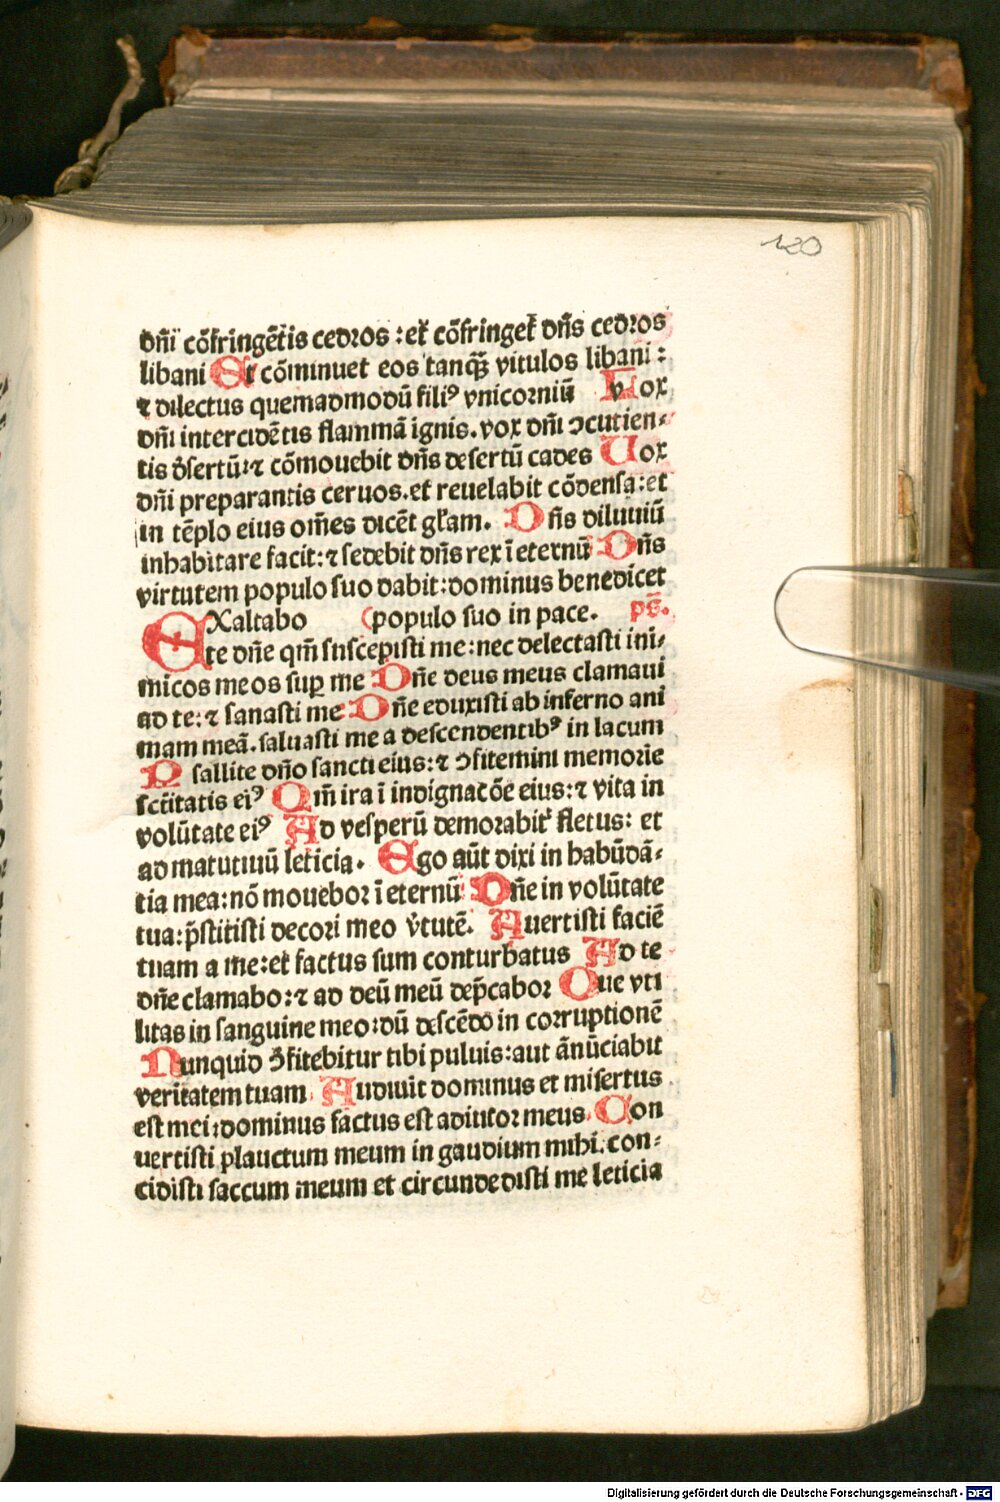 120
dn̄i cōfringētis cedros : et̉ cōfringet̉ dn̄s cedros
libani Et cōminuet eos tanqȝ̄ vitulos libani :
⁊ dilectus quemadmodū fili⁹ vnicorniū Vox
dn̄i intercidētis flammā ignis. vox dn̄i ↄcutien⸗
tis d̓sertū:⁊ cōmouebit dn̄s desertū cades Uox
dn̄i preparantis ceruos.et reuelabit cōdensa:et
in tēplo eius om̄es dicēt gl̓am. Dn̄s diluuiū
inhabitare facit:⁊ sedebit dn̄s rex ī eternū Dn̄s
virtutem populo suo dabit:dominus benedicet
EXaltabo (populo suo in pace. ps̄.
te dn̄e qm̄ suscepisti me:nec delectasti ini⸗
micos meos suꝑ me Dn̄e deus meus clamaui
ad te:⁊ sanasti me Dn̄e eduxisti ab inferno ani
mam meā.saluasti me a descendentib⁹ in lacum
Psallite dn̄o sancti eius:⁊ ↄfitemini memorie
sc̄titatis ei⁹ Qm̄ ira ī indignatōe eius:⁊ vita in
volūtate ei⁹ Ad vesperū demorabit̉ fletus: et
ad matutinū leticia. Ego aūt dixi in habūdā⸗
tia mea:nō mouebor ī eternū Dn̄e in volūtate
tua:p̄stitisti decori meo v̓tutē. Auertisti faciē
tuam a me:et̉ factus sum conturbatus Ad te
dn̄e clamabo:⁊ ad deū meū dep̄cabor Que vti
litas in sanguine meo:dū descēdo in corruptionē
Nunquid ↄ̄fitebitur tibi puluis:aut ānūciabit
veritatem tuam Audiuit dominus et misertus
est mei:dominus factus est adiutor meus. Con
uertisti planctum meum in gaudium mihi.con⸗
cidisti saccum meum et circundedisti me leticia
Digitalisierung gefördert durch die Deutsche Forschungsgemeinschaft - DFG